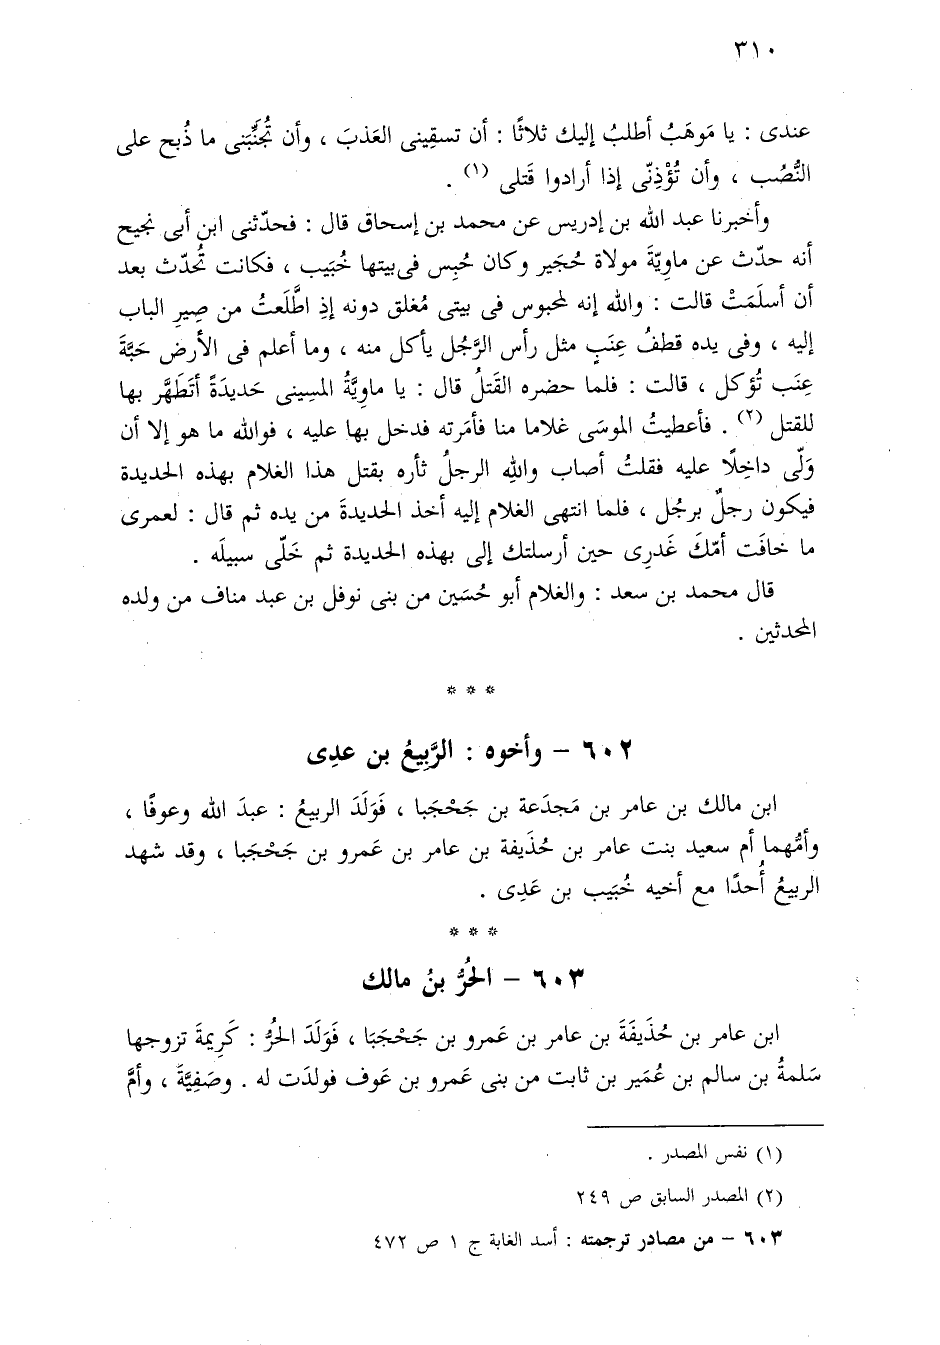 ٣١٠
عندى : يا مَوهَبُ أطلبُ إليك ثلاثًا : أن تسقِينى العَذبَ ، وأن تُجَنِّبَنى ما ذُبح على
النُّصُب ، وأن تُؤْذِنّى إذا أرادوا قَتلى (١) .
وأخبرنا عبد الله بن إدريس عن محمد بن إسحاق قال : فحدّثنى ابن أبى نجيح
أنه حدّث عن ماوِيّةَ مولاة حُجَير وكان حُبِس فى بيتها خُبَيب ، فكانت تُحدّث بعد
أن أسلَمَتْ قالت : والله إنه لمحبوس فى بيتى مُغلق دونه إذِ اطَّلَعتُ من صِيرِ الباب
إليه ، وفى يده قطفُ عِنَبٍ مثل رأس الرَّجُل يأكل منه ، وما أعلم فى الأرض حَبَّةَ
عِنَب تُؤكل ، قالت : فلما حضره القَتلُ قال : يا ماوِيَّةُ المسِينى حَديدَةً أتَطَهَّر بها
للقتل (٢) . فأعطيتُ الموسَى غلاما منا فأمَرته فدخل بها عليه ، فوالله ما هو إلا أن
وَلّى داخِلًا عليه فقلتُ أصاب واللهِ الرجلُ ثأره بقتل هذا الغلام بهذه الحديدة
فيكون رجلٌ برجُل ، فلما انتهى الغلام إليه أخذ الحديدةَ من يده ثم قال : لعمرى
ما خافَت أمّكَ غَدرِى حين أرسلتك إلى بهذه الحديدة ثم خَلّى سبيلَه .
قال محمد بن سعد : والغلام أبو حُسَين من بنى نوفل بن عبد مناف من ولده
المحدثين .
* * *
٦٠٢ - وأخوه : الرَّبِيعُ بن عدِى
ابن مالك بن عامر بن مَجدَعة بن جَحْجَبا ، فَوَلَدَ الربيعُ : عبدَ الله وعوفًا ،
وأمُّهما أم سعيد بنت عامر بن حُذَيفة بن عامر بن عَمرو بن جَحْجَبا ، وقد شهد
الربيعُ أُحدًا مع أخيه خُبَيب بن عَدِى .
* * *
٦٠٣ - الحُرُّ بنُ مالك
ابن عامر بن حُذَيفَةَ بن عامر بن عَمرو بن جَحْجَبَا ، فَوَلَدَ الحُرُّ : كَرِيمةَ تزوجها
سَلمةُ بن سالم بن عُمَير بن ثابت من بنى عَمرو بن عَوف فولدَت له . وصَفِيَّةَ ، وأمَّ
(١) نفس المصدر .
(٢) المصدر السابق ص ٢٤٩
٦٠٣ - من مصادر ترجمته : أسد الغابة ج ١ ص ٤٧٢